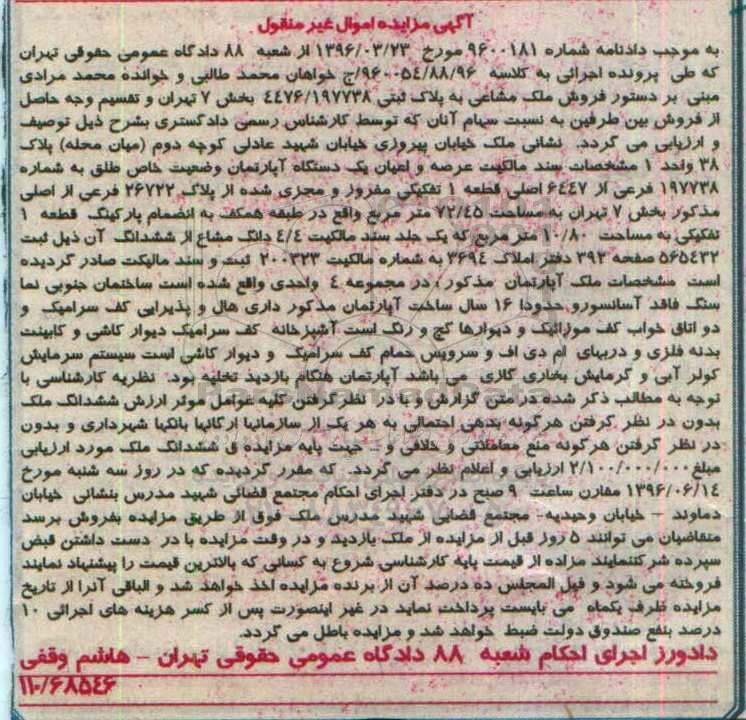 آگهی مزایده اموال غیر منقول
به موجب دادنامه شماره ۹۶۰۰۱۸۱ مورخ ۱۳۹۶/۰۳/۲۳ از شعبه ۸۸ دادگاه عمومی حقوقی تهران
که طی پرونده اجرائی به کلاسه ۹۶۰۰۵۴/۸۸/۹۶/ج خواهان محمد طالبی و خوانده محمد مرادی
مبنی بر دستور فروش ملک مشاعی به پلاک ثبتی ۴۴۷۶/۱۹۷۷۳۸ بخش ۷ تهران و تقسیم وجه حاصل
از فروش بین طرفین به نسبت سهام آنان که توسط کارشناس رسمی دادگستری بشرح ذیل توصیف
و ارزیابی می گردد. نشانی ملک خیابان پیروزی خیابان شهید عادلی کوچه دوم (میهان محله) پلاک
۳۸ واحد ۱ مشخصات سند مالکیت عرصه و اعیان یک دستگاه آپارتمان وضعیت خاص طلق به شماره
۱۹۷۷۳۸ فرعی از ۶۴۴۷ اصلی قطعه ۱ تفکیکی مفروز و مجزی شده از پلاک ۲۶۷۲۲ فرعی از اصلی
مذکور بخش ۷ تهران به مساحت ۷۲/۴۵ متر مربع واقع در طبقه همکف به انضمام پارکینگ قطعه ۱
تفکیکی به مساحت ۱۰/۸۰ متر مربع که یک جلد سند مالکیت ۴/۴ دانگ مشاع از ششدانگ آن ذیل ثبت
۵۶۵۴۳۲ صفحه ۳۹۲ دفتر املاک ۳۶۹۴ به شماره مالکیت ۲۰۰۳۲۳ ثبت و سند مالیکت صادر گردیده
است مشخصات ملک آپارتمان مذکور، در مجموعه ۴ واحدی واقع شده است ساختمان جنوبی نما
سنگ فاقد آسانسورو حدودا ۱۶ سال ساخت آپارتمان مذکور داری هال و پذیرایی کف سرامیک و
دو اتاق خواب کف موزائیک و دیوارها گچ و رنگ است آشپزخانه کف سرامیک دیوار کاشی و کابینت
بدنه فلزی و دربهای ام دی اف و سرویس حمام کف سرامیک و دیوار کاشی است سیستم سرمایش
کولر آبی و گرمایش بخاری گازی می باشد آپارتمان هنگام بازدید تخلیه بود. نظریه کارشناسی با
توجه به مطالب ذکر شده در متن گزارش و با در نظر گرفتن کلیه عوامل موثر ارزش ششدانگ ملک
بدون در نظر گرفتن هرگونه بدهی احتمالی به هر یک از سازمانها ارگانها بانکها شهرداری و بدون
در نظر گرفتن هرگونه منع معاملاتی و خلافی و .. جهت پایه مزایده ی ششدانگ ملک مورد ارزیابی
مبلغ ۲/۱۰۰/۰۰۰/۰۰۰ ارزیابی و اعلام نظر می گردد. که مقرر گردیده که در روز سه شنبه مورخ
۱۳۹۶/۰۶/۱۴ مقارن ساعت ۹ صبح در دفتر اجرای احکام مجتمع قضائی شهید مدرس بنشانی خیابان
دماوند – خیابان وحیدیه- مجتمع قضایی شهید مدرس ملک فوق از طریق مزایده بفروش برسد
متقاضیان می توانند ۵ روز قبل از مزایده از ملک بازدید و در وقت مزایده با در دست داشتن قبض
سپرده شرکتنمایند مزاده از قیمت پایه کارشناسی شروع به کسانی که بالاترین قیمت را پیشنهاد نمایند
فروخته می شود و فیل المجلس ده درصد آن از برنده مزایده اخذ خواهد شد و الباقی آنرا از تاریخ
مزایده ظرف یکماه می بایست پرداخت نماید در غیر اینصورت پس از کسر هزینه های اجرائی ۱۰
درصد بنفع صندوق دولت ضبط خواهد شد و مزایده باطل می گردد.
دادورز اجرای احکام شعبه ۸۸ دادگاه عمومی حقوقی تهران – هاشم وقفی
۱۱۰/۶۸۵۴۶